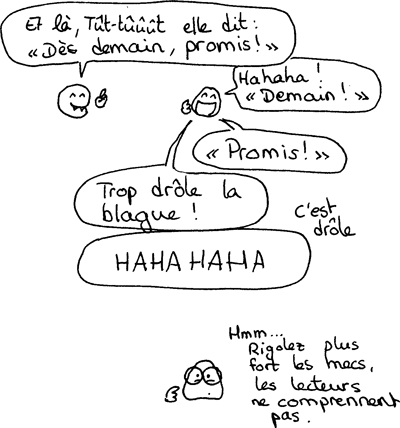 Et là, Tût-tûûût elle dit :
« Dès demain, promis ! »
Hahaha !
« Demain ! »
« Promis ! »
Trop drôle la
blague !
C'est
drôle
HAHA HAHA
Hmm...
Rigolez plus
fort les mecs,
les lecteurs
ne comprennent
pas.